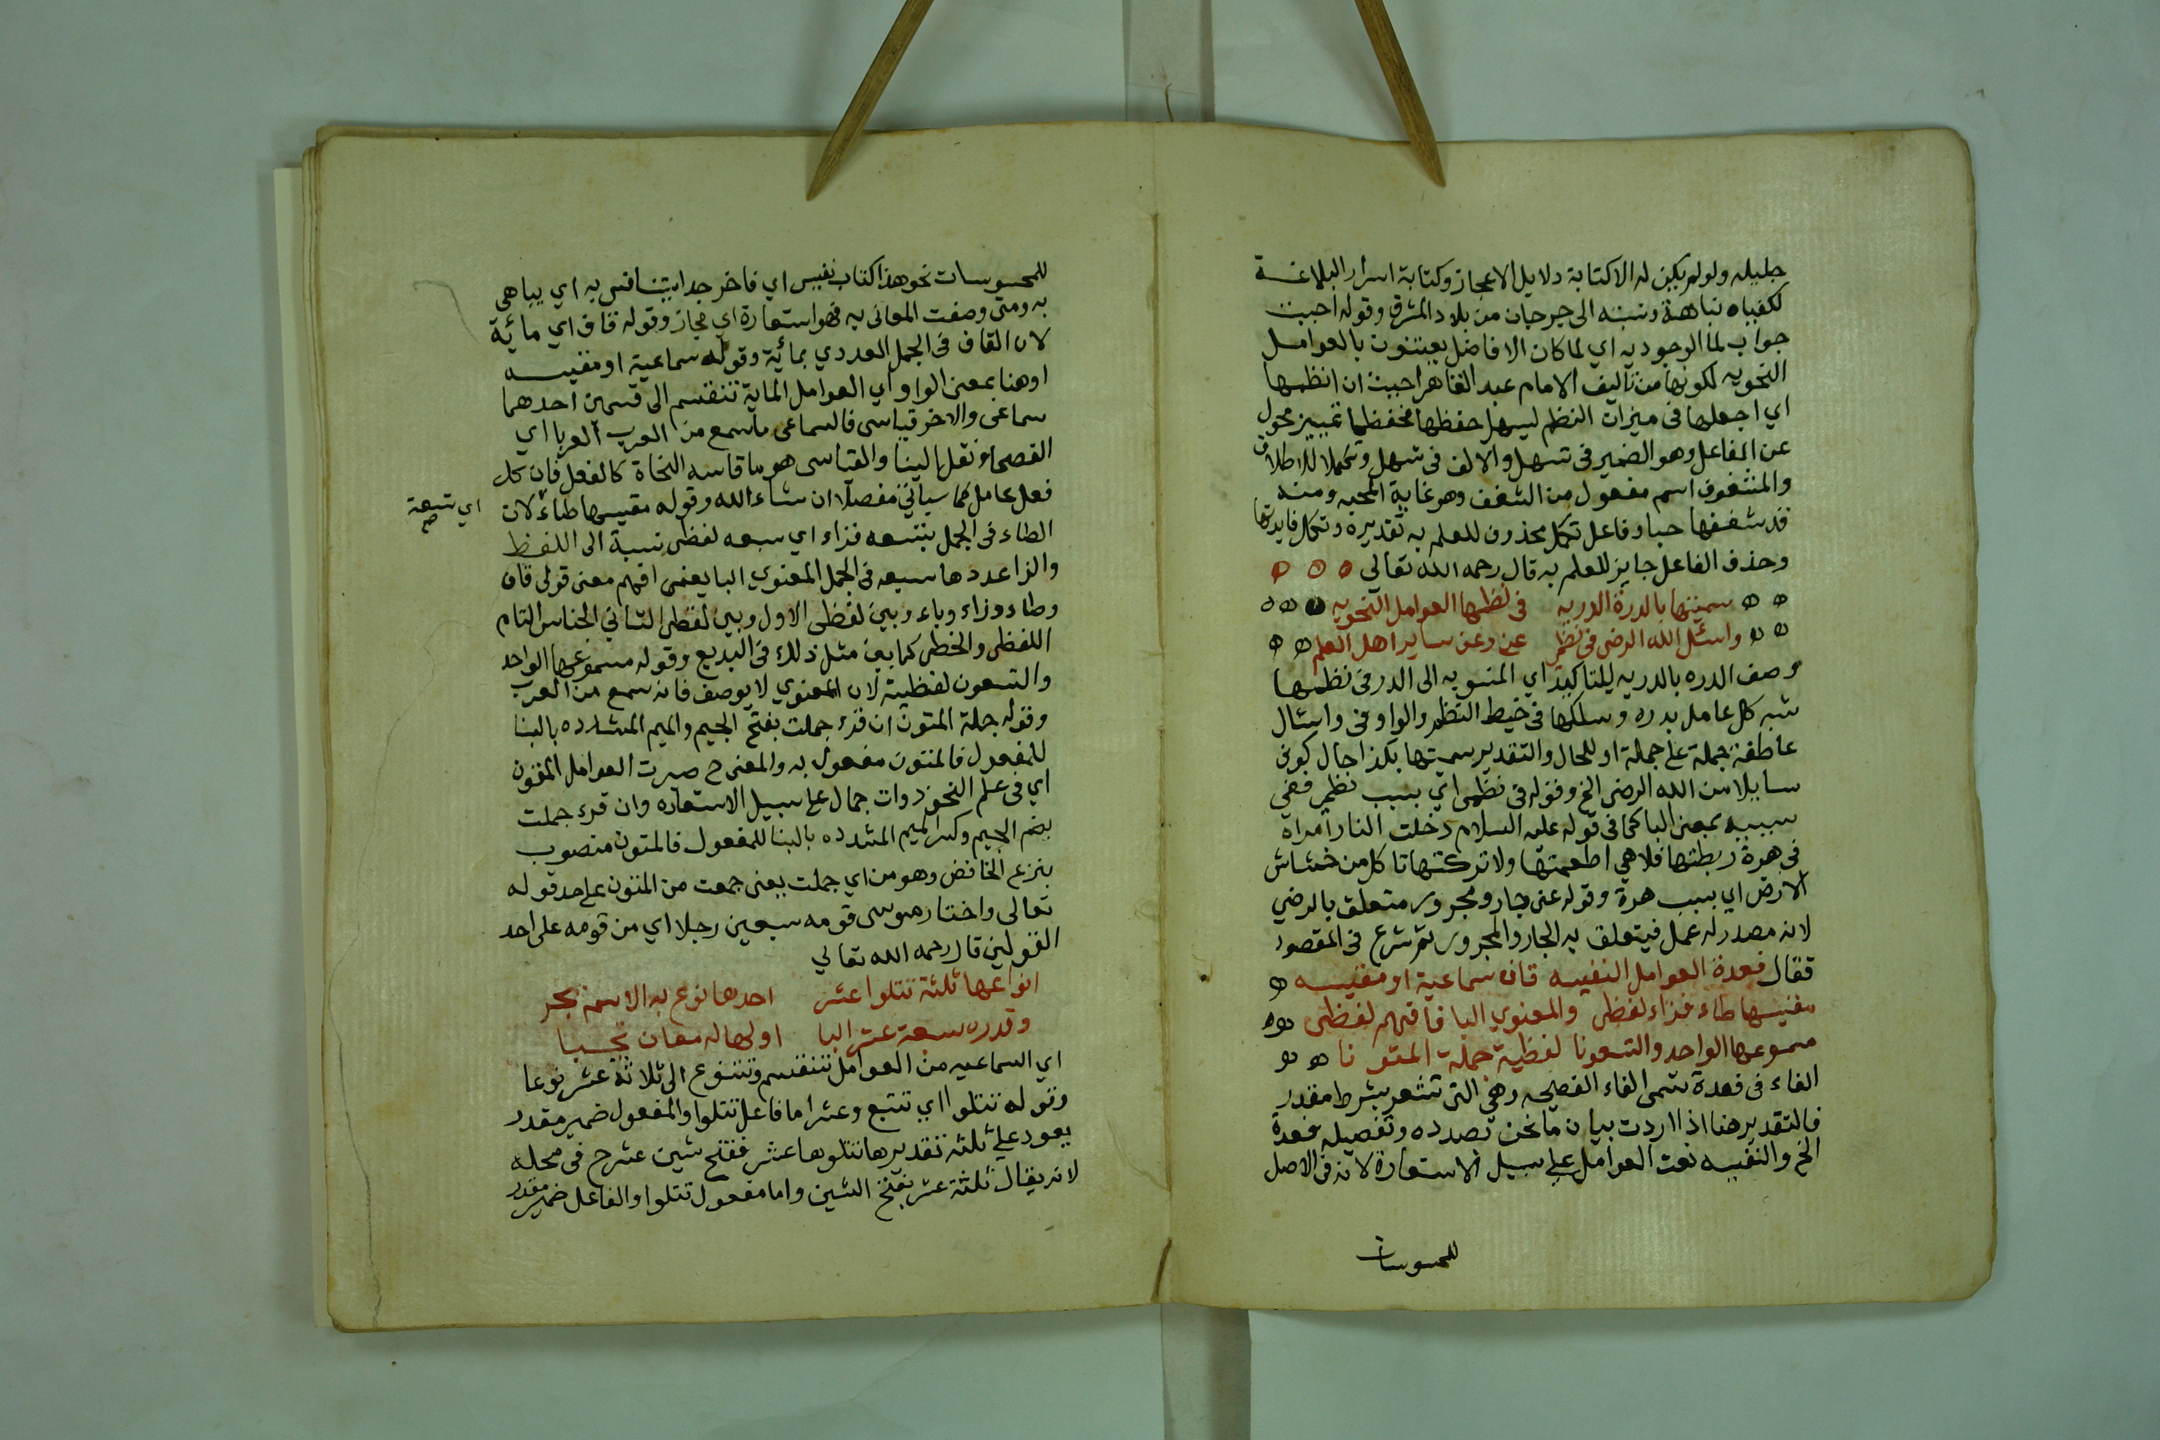 جليله ولو لم يكن له الاكتابة دلايل الاعجاز وكتابة اسرار البلاغة
لكفياه نباهة ونسبه الى جرجان من بلاد المشرق وقوله احببت
جواب لما الوجوديه اي لما كان الافاضل يعتنون بالعوامل
النحويه لكونها من تاليف الامام عبد القاهر احببت ان انظمها
اي اجعلها في ميزان النظم ليسهل حفظها فحفظها تمييز محول
عن الفاعل وهو الضمير في تسهل والالف في تسهل وتكملا للاطلاق
والمشغوف اسم مفعول من الشغف وهو غاية المحبه ومنه
قد شغفها حبا وفاعل تكمل محذوف للعلم به تقديره وتكمل فايدتها
وحذف الفاعل جايز للعلم به قال رحمه الله تعالى
سميتها بالدرة الدريه في نظمها العوامل النحويه
واسئل الله الرضى في نظمي عني وعن ساير اهل العلم
وصف الدره بالدريه للتاكيد اي المنسوبه الى الدر في نظمها
شبه كل عامل بدره وسلكها في خيط النظم والواو في واسئال
عاطفة جملة على جملة او للحال والتقدير سميتها بكذا حال كوني
سايلا من الله الرضى الخ وقوله في نظمي اي بسبب نظمي ففي
سببيه بمعنى البا كما في قوله عليه السلام دخلت النار امراة
في هرة ربطتها فلا هي اطعمتها ولا تركتها تاكل من خشاش
الارض اي بسبب هرة وقوله عني جار ومجرور متعلق بالرضي
لانه مصدر له عمل فيتعلق به الجار والمجرور ثم شرع في المقصود
فقال فعدة العوامل النفيسه قاف سماعية او مقيسه
مقيسها طاء فزاء لفظي والمعنوي البا فافهم لفظي
مسموعها الواحد والتسعونا لفظية جملة المتونا
الفاء في فعدة تسمى الفاء الفصيحه وهي التي تشعر بشرط مقدر
فالتقدير هنا اذا اردت بيان ما نحن بصدده وتفصيله فعدة
الخ والنفيسه نعت العوامل على سبيل الاستعارة لانه في الاصل
للمحسوسات
للمحسوسات نحو هذا كتاب نفيس اي فاخر جدا يتنافس به اي يباهى
به ومتى وصفت المعاني به فهو استعارة اي مجاز وقوله قاف اي مائية
لان القاف في الجمل العددي بمائة وقوله سماعية او مقيسه
او هنا بمعنى الواو اي العوامل الماية تنقسم الى قسمين احدهما
سماعي والاخر قياسي فالسماعي ما سمع من العرب العربا اي
الفصحاء ونقل الينا والقياسي هو ما قاسه النحاة كالفعل فان كل
فعل عامل كما سياتي مفصلا ان شاء الله وقوله مقيسها طاء لان
اي تسعة صح
الطاء في الجمل بتسعه فزاء اي سبعه لفظي نسبة الى اللفظ
والزا عددها سبعه في الجمل المعنوي البا يعني افهم معنى قولي قاف
وطاء وزاء وباء وبين لفظي الاول وبين لفظي الثاني الجناس التام
اللفظي والخطي كما بين مثل ذلك في البديع وقوله مسموعها الواحد
والتسعون لفظية لان المعنوي لا يوصف فانه سمع من العرب
وقوله جملة المتون ان قرء جملت بفتح الجيم والميم المشدده بالبنا
للمفعول فالمتون مفعول به والمعنى ح صيرت العوامل المتون
اي في علم النحو ذوات جمال على سبيل الاستعاره وان قرء جملت
بضم الجيم وكسر الميم المشدده بالبنا للمفعول فالمتون منصوب
بنزع الخافض وهو من اي جملت يعني جمعت من المتون على حد قوله
تعالى واختار موسى قومه سبعين رجلا اي من قومه على احد
القولين قال رحمه الله تعالى
انواعها ثلثة تتلوا عشر احدها نوع به الاسم يجر
وقدره سبعة عشر البا اولها له معان تجبا
اي السماعيه من العوامل تنقسم وتتنوع الى ثلاثة عشر نوعا
وقوله تتلوا اي تتبع وعشر اما فاعل تتلوا والمفعول ضمير مقدر
يعود على ثلثة تقديرها تتلوها عشر ففتح شين عشر ح في محله
لانه يقال ثلثة عشر بفتح الشين واما مفعول تتلوا والفاعل ضمير مقدر